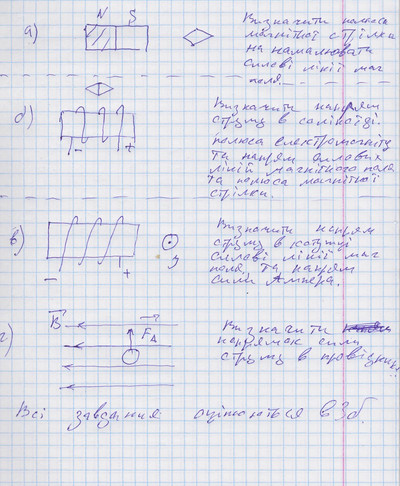 а)
N S
Визначити полюса
магнітної стрілки
на намалювати
силові лінії маг
поля.
б)
- +
Визначити напрям
струму в соленоїді.
полюса електромагніту
та напрям силових
ліній магнітного поля
та полюса магнітної
стрілки.
в)
- +
Визначити напрям
струму в котушці
силові лінії маг
поля, та напрям
сили Ампера.
г)
B
F А
Визначити
напрямок сили
струму в провіднику
Всі завдання оцінюються в 3б.